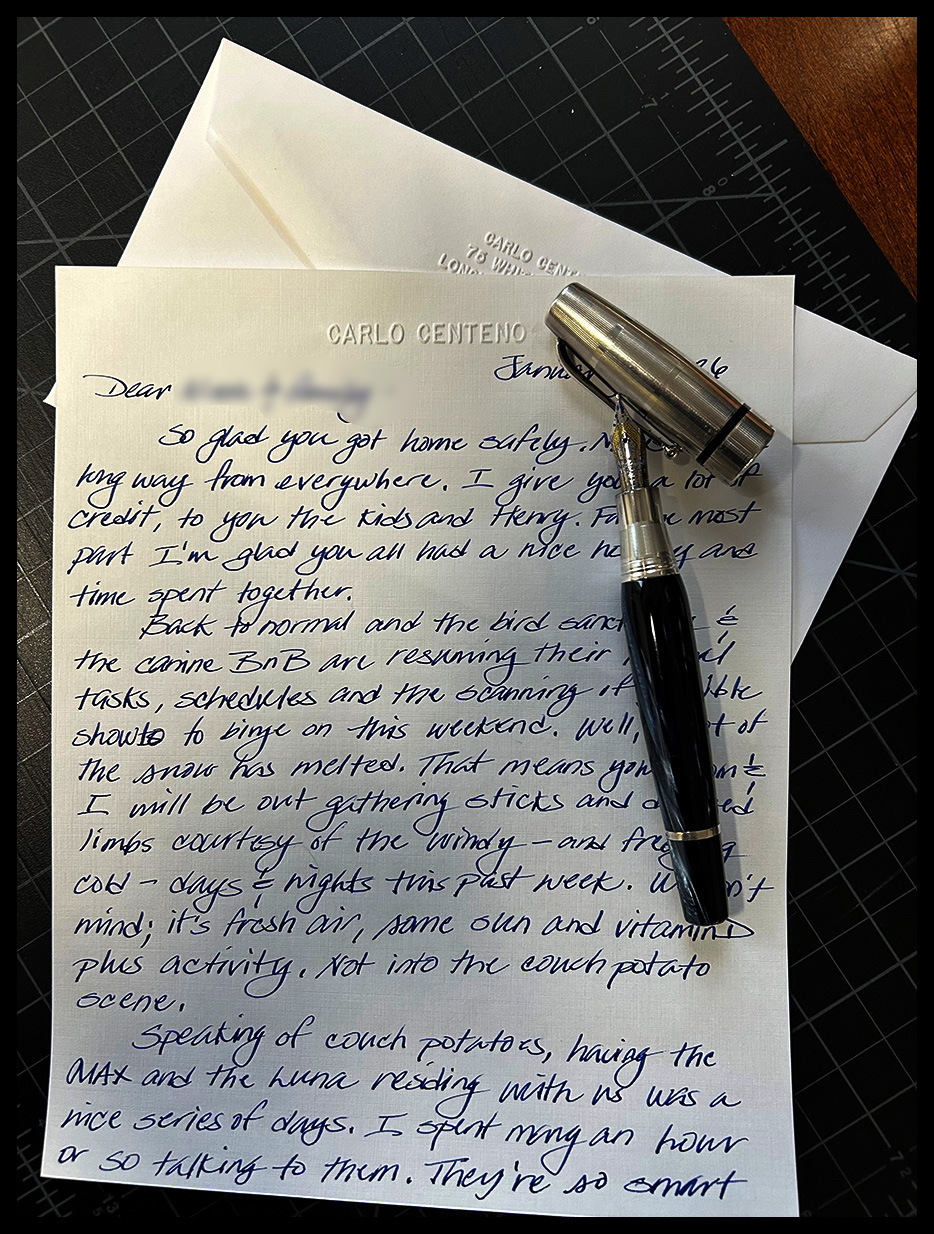 CARLO CENTENO
CARLO CENT
76 WHI
LON
Dear
Janua 26
So glad you got home safely.
long way from everywhere. I give you a lot of
credit, to you the kids and Henry. most
part I'm glad you all had a nice and
time spent together.
Back to normal and the bird &
the canine BnB are resuming their
tasks, schedules and the scanning of
shows to binge on this weekend. Well, of
the snow has melted. That means &
I will be out gathering sticks and
limbs courtesy of the windy – and
cold – days & nights this past week.
mind; it's fresh air, some sun and vitamin D
plus activity. Not into the couch potato
scene.
Speaking of couch potatoes, having the
MAX and the Luna residing with us was a
nice series of days. I spent many an hour
or so talking to them. They're so smart